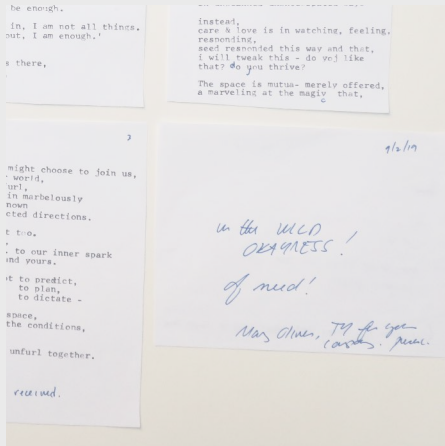 be enough.
in, I am not all things.
out, I am enough.'
s there,
instead,
care & love is in watching, feeling,
responding,
seed responded this way and that,
i will tweak this - do yoj like
that? do you thrive?
The space is mutua- merely offered,
a marveling at the magiv that,
c
3
might choose to join us,
world,
url,
in marbelously
nown
cted directions.
t too.
to our inner spark
and yours.
ot to predict,
to plan,
to dictate -
space,
the conditions,
unfurl together.
received.
9/2/19
in the WILD
OKAYNESS!
of need!
Mary Oliver, TY for your